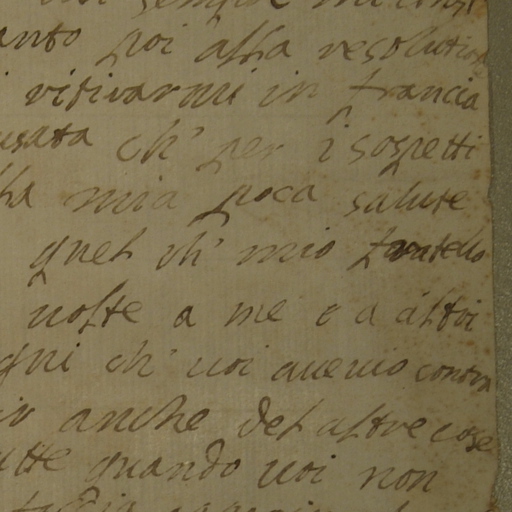 sempre
anto poi alla resolution
ritirarmi in francia
usata ch' per i sospetti
lla mia poca salute
quel ch' mio fratello
uolte a me e a altri
gni ch' uoi aueuio contra
io anche del altre cose
utte quando uoi non